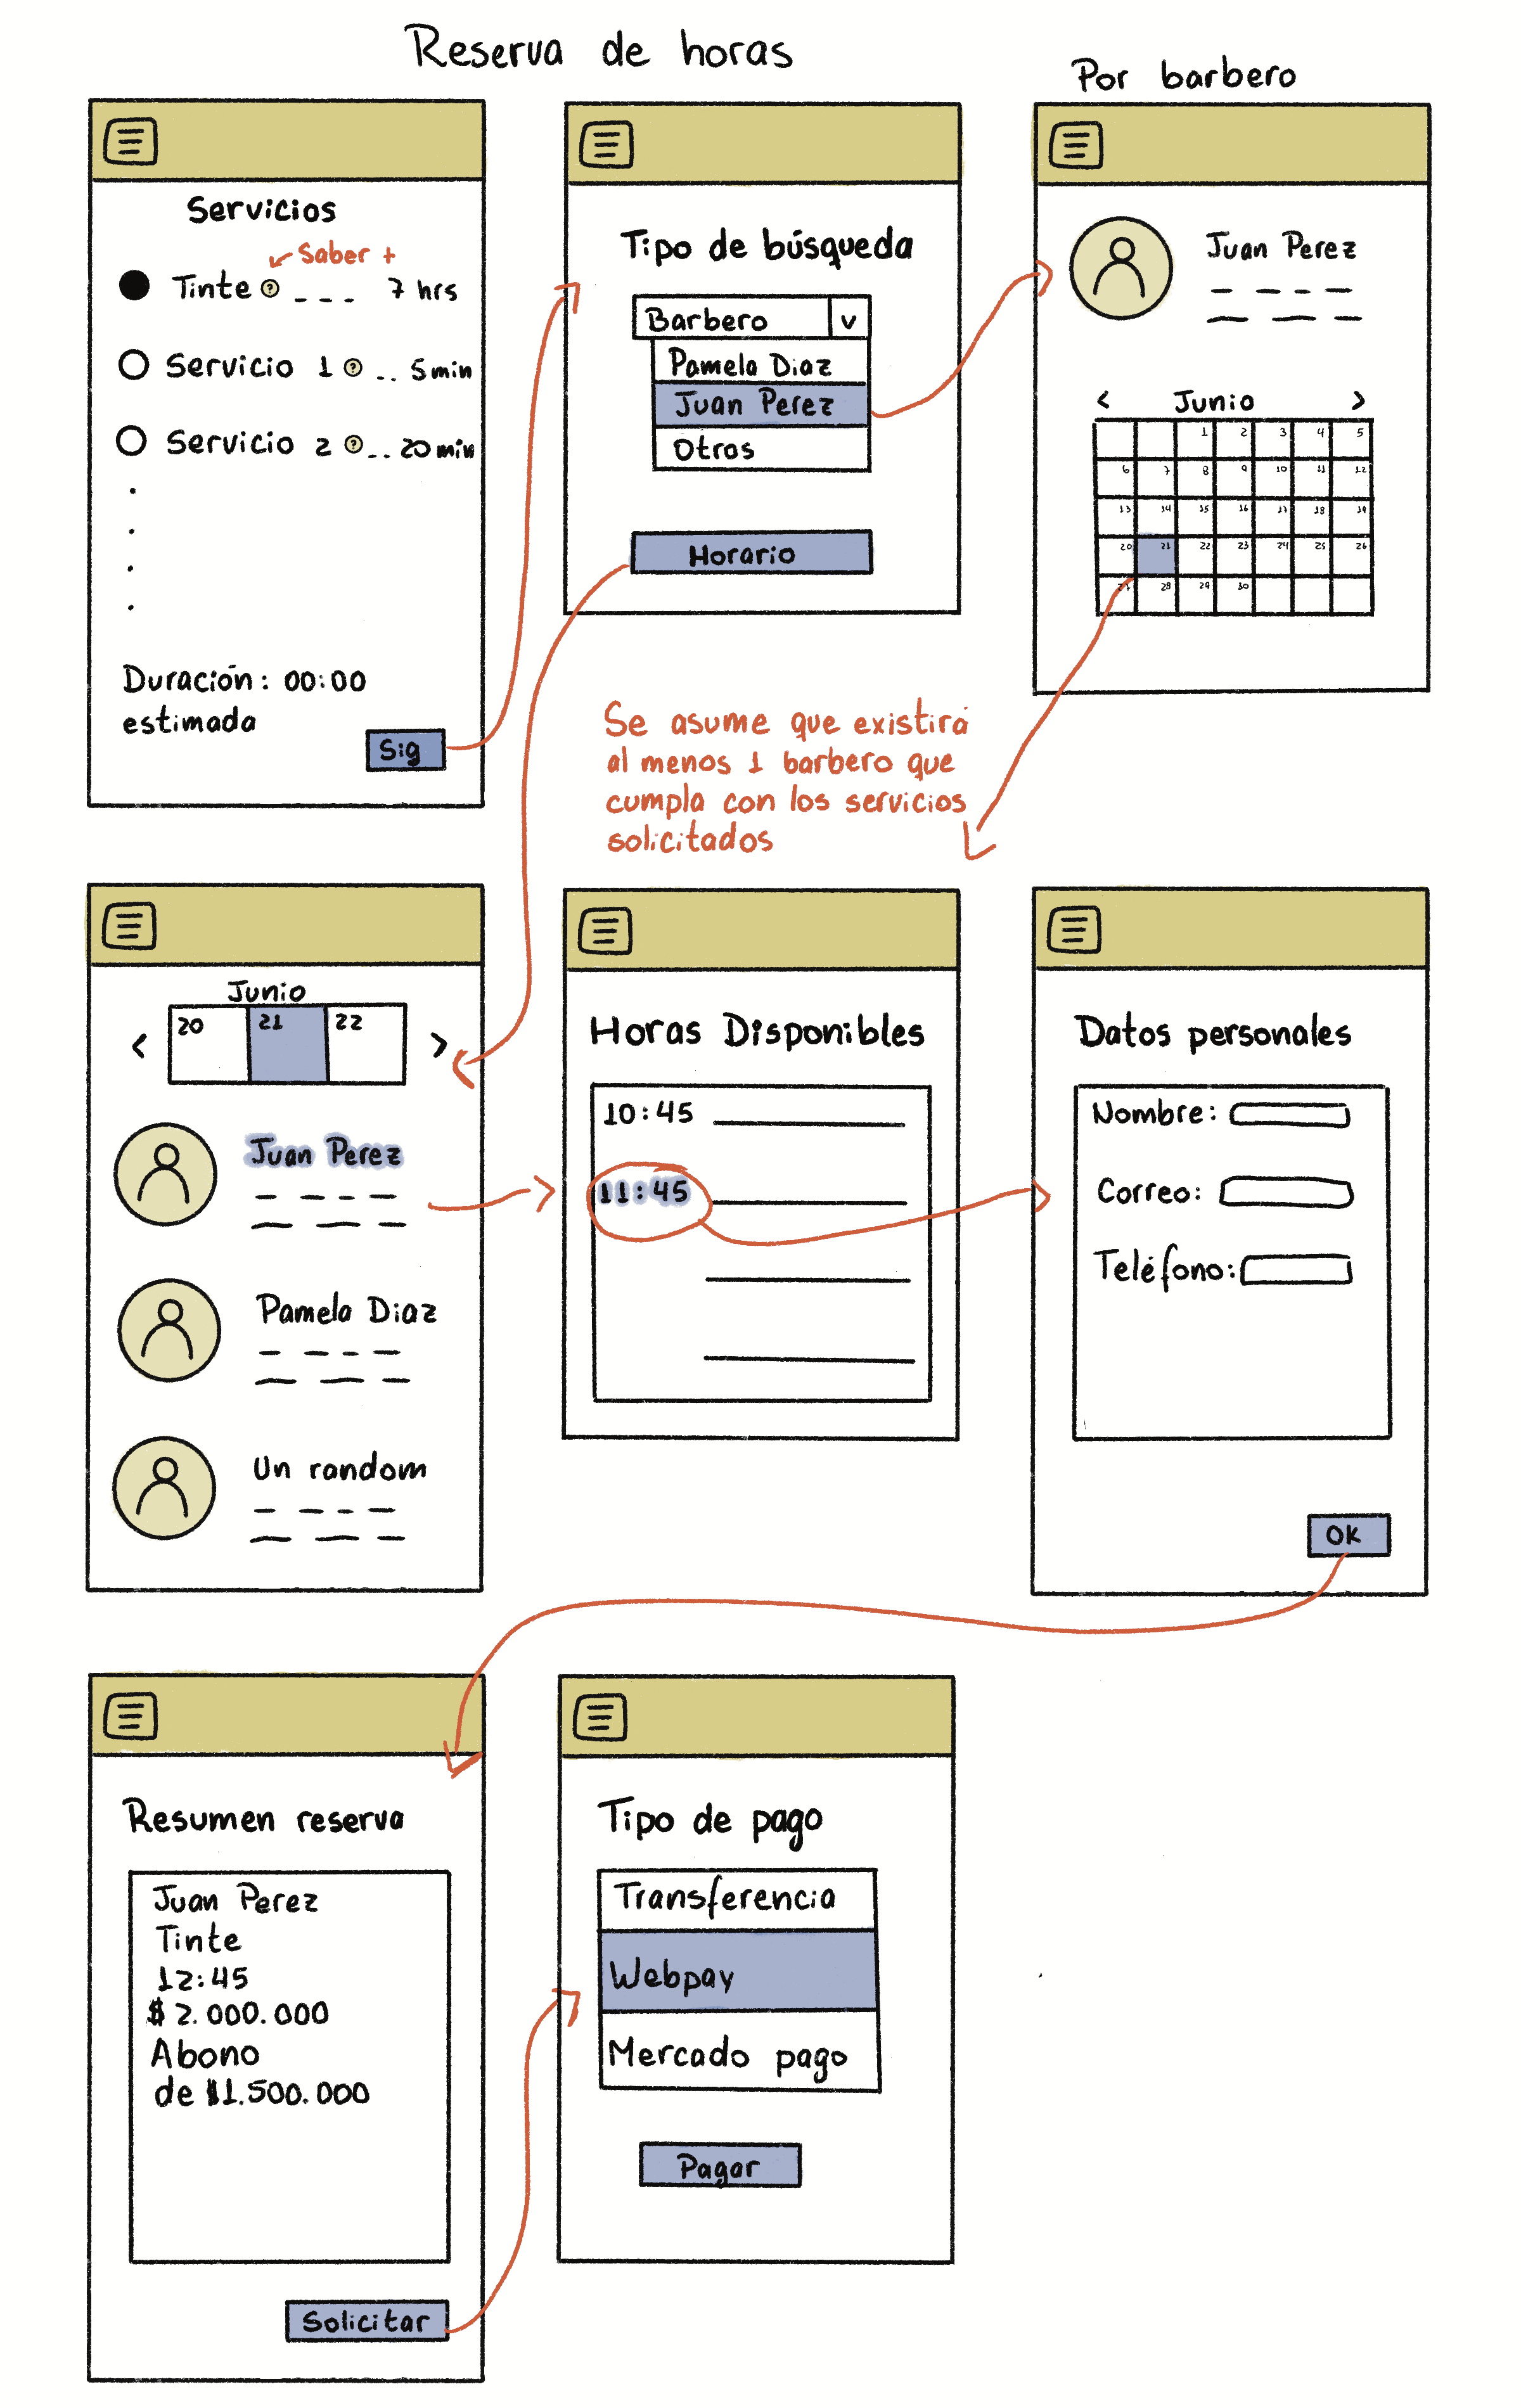 Reserva de horas
Servicios
Saber +
Tinte ? _ _ _ 7 hrs
Servicio 1 ? .. 5 min
Servicio 2 ? .. 20 min
Duración: 00:00
estimada
Sig
Tipo de búsqueda
Barbero v
Pamela Diaz
Juan Perez
Otros
Horario
Por barbero
Juan Perez
< Junio >
1 2 3 4 5
6 7 8 9 10 11 12
13 14 15 16 17 18 19
20 21 22 23 24 25 26
27 28 29 30
Se asume que existirá
al menos 1 barbero que
cumpla con los servicios
solicitados
Junio
< 20 21 22 >
Juan Perez
Pamela Diaz
Un random
Horas Disponibles
10:45
11:45
Datos personales
Nombre:
Correo:
Teléfono:
OK
Resumen reserva
Juan Perez
Tinte
12:45
$ 2.000.000
Abono
de $1.500.000
Solicitar
Tipo de pago
Transferencia
Webpay
Mercado pago
Pagar